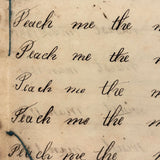 Peach me the m
Peach me the m
Peach me the m
Peach me the m
Peach me the m